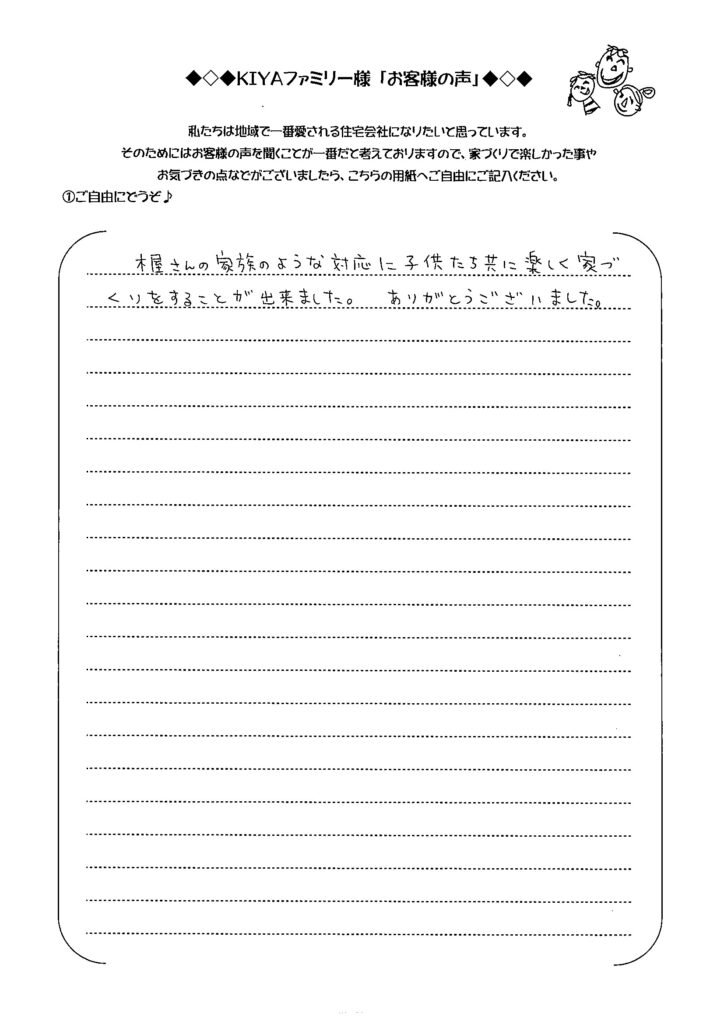 ◆◇◆KIYAファミリー様「お客様の声」◆◇◆
私たちは地域で一番愛される住宅会社になりたいと思っています。
そのためにはお客様の声を聞くことが一番だと考えておりますので、家づくりで楽しかった事や
お気づきの点などがございましたら、こちらの用紙へご自由にご記入ください。
①ご自由にどうぞ♪
木屋さんの家族のような対応に子供たち共に楽しく家づ
くりをすることが出来ました。 ありがとうございました。